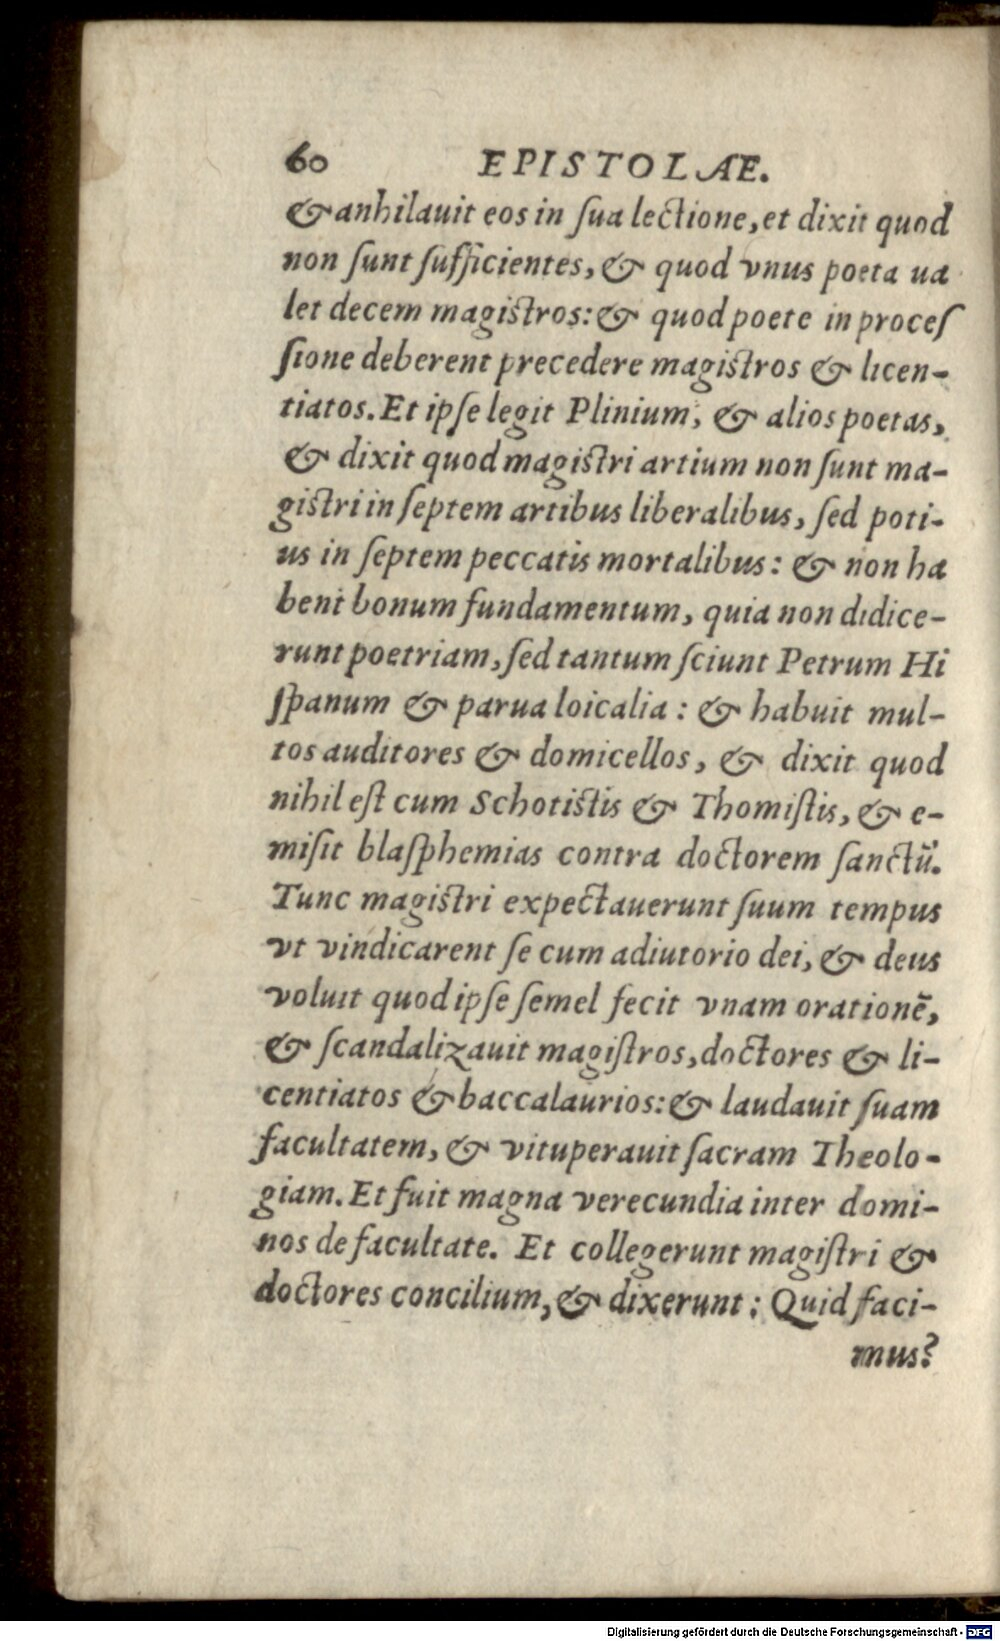 60 EPISTOLAE.
& anhilauit eos in ſua lectione, et dixit quod
non ſunt ſufficientes, & quod vnus poeta ua
let decem magiſtros: & quod poete in proceſ
ſione deberent precedere magiſtros & licen-
tiatos. Et ipſe legit Plinium, & alios poetas,
& dixit quod magiſtri artium non ſunt ma-
giſtri in ſeptem artibus liberalibus, ſed poti-
us in ſeptem peccatis mortalibus: & non ha
bent bonum fundamentum, quia non didice-
runt poetriam, ſed tantum ſciunt Petrum Hi
ſpanum & parua loicalia : & habuit mul-
tos auditores & domicellos, & dixit quod
nihil eſt cum Schotiſtis & Thomiſtis, & e-
miſit blaſphemias contra doctorem ſanctū.
Tunc magiſtri expectauerunt ſuum tempus
vt vindicarent ſe cum adiutorio dei, & deus
voluit quod ipſe ſemel fecit vnam orationē,
& ſcandalizauit magiſtros, doctores & li-
centiatos & baccalaurios: & laudauit ſuam
facultatem, & vituperauit ſacram Theolo-
giam. Et fuit magna verecundia inter domi-
nos de facultate. Et collegerunt magiſtri &
doctores concilium, & dixerunt : Quid faci-
mus?
Digitalisierung gefördert durch die Deutsche Forschungsgemeinschaft - DFG